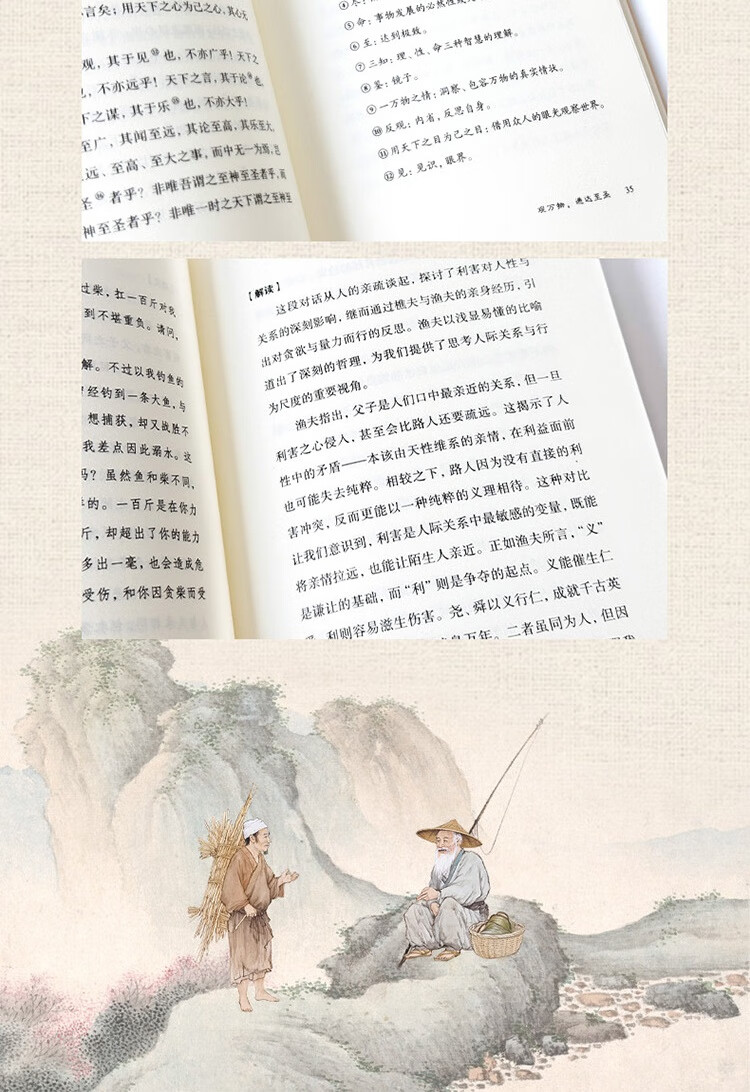 言矣；用天下之心为己之心，其心无
观，其于见⑫也，不亦广乎！天下之
，不亦远乎！天下之言，其于论⑭也，
下之谋，其于乐⑮也，不亦大乎！
至广，其闻至远，其论至高，其乐至大，
远、至高、至大之事，而中无一为焉，岂
圣⑯者乎？非唯吾谓之至神至圣者乎？
神至圣者乎？非唯一时之天下谓之至神至
⑤命：事物发展的必然性
⑥至：达到极致。
⑦三知：理、性、命三种智慧的理解。
⑧鉴：镜子。
⑨一万物之情：洞察、包容万物的真实情状。
⑩反观：内省，反思自身。
⑪用天下之目为己之目：借用众人的眼光观察世界。
⑫见：见识，眼界。
观万物，通达至圣 35
过柴，扛一百斤对我
到不堪重负。请问，
解。不过以我钓鱼的
经钓到一条大鱼，与
想捕获，却又战胜不
我差点因此溺水。这
吗？虽然鱼和柴不同，
的。一百斤是在你力
斤，却超出了你的能力
多出一毫，也会造成危
受伤，和你因贪柴而受
【解读】
这段对话从人的亲疏谈起，探讨了利害对人性与
关系的深刻影响，继而通过樵夫与渔夫的亲身经历，引
出对贪欲与量力而行的反思。渔夫以浅显易懂的比喻
道出了深刻的哲理，为我们提供了思考人际关系与行
为尺度的重要视角。
渔夫指出，父子是人们口中最亲近的关系，但一旦
利害之心侵入，甚至会比路人还要疏远。这揭示了人
性中的矛盾——本该由天性维系的亲情，在利益面前
也可能失去纯粹。相较之下，路人因为没有直接的利
害冲突，反而更能以一种纯粹的义理相待。这种对比
让我们意识到，利害是人际关系中最敏感的变量，既能
将亲情拉远，也能让陌生人亲近。正如渔夫所言，“义”
是谦让的基础，而“利”则是争夺的起点。义能催生仁
，利则容易滋生伤害。尧、舜以义行仁，成就千古英
万年。二者虽同为人，但因